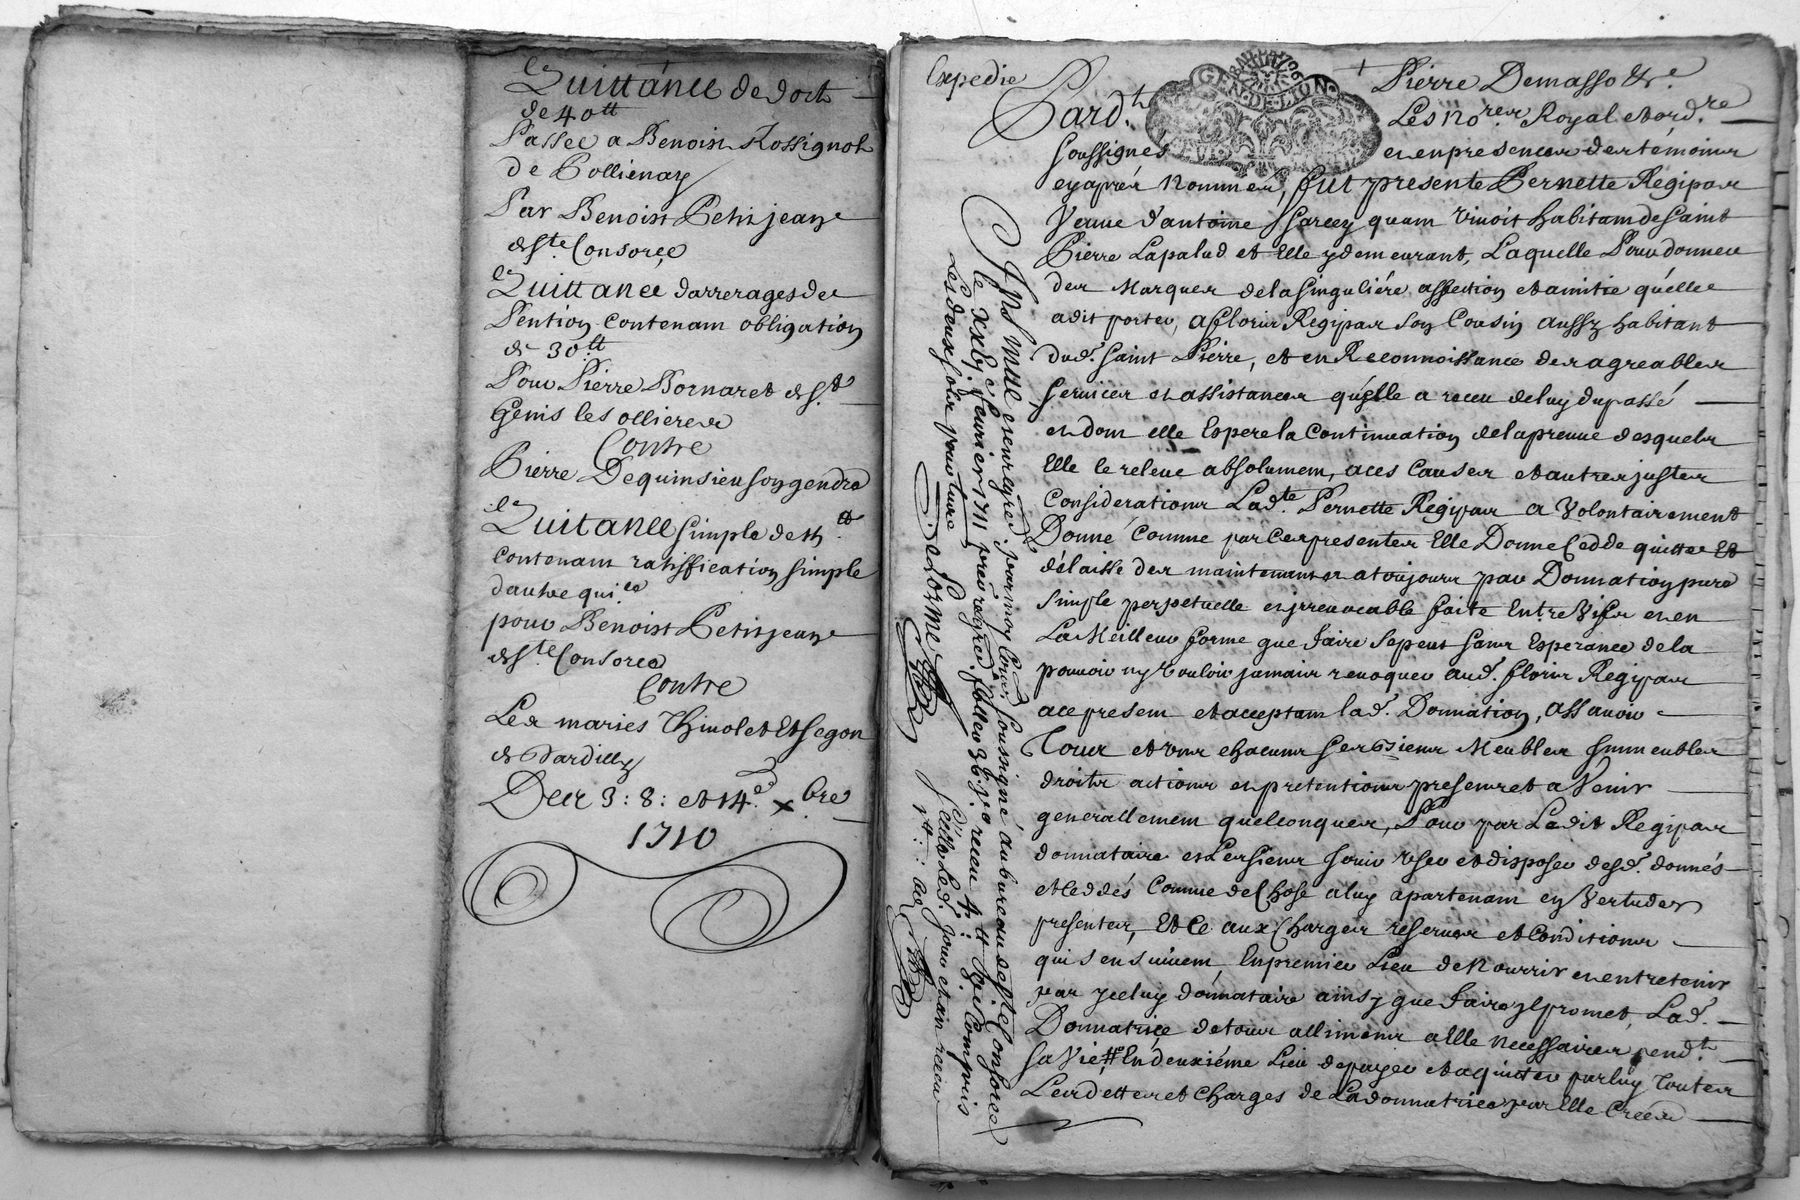 Quittance de dot
de 40tt
Passee a Benoist Rossignol
de Pollienay
Par Benoist Petitjean
de Ste Consorce
Quittance darrerages de
Pention contenam obligation
de 30tt
Pour Pierre Bornaret de St
Genis les ollieres
Contre
Pierre Dequinsieu son gendre
Quitance simple de
contenam ratiffication simple
dautre qui.ce
pour Benoist Petitjean
de Ste Consorce
Contre
Les maries Thivolet et Segon
de Dardilly
Des 3: 8: et 14e xbre
1710
Expedie
Pard.t Pierre Demasso &c
GEN. DE LION
Les no.res Royal et ord.re
soussignés et en presence des témoins
cy aprés nommés, fut presente Pernette Regipas
Veuve d'antoine quam vivoit habitam de saint
Pierre Lapalud et Elle y demeurant, Laquelle Pour donner
des Marques de la singuliére affection et amitie quélle
a dit porter, a floris Regipas son Cousin aussy habitant
dud. saint Pierre, et en Reconnoissance des agreables
services et assistances quélle a receu de luy du passé
et dom elle Espere la Continuation de la preuve desquels
Elle le releve absolumem, a ces Causes et autres justes
Considerations Lad.te Pernette Regipas a Volontairement
Donné comme par Ces presentes Elle Donne Cedde quitte Et
délaisse des maintenant et a toujours par Donnation pure
simple perpetuelle et irrevocable faite Entre Vifs et en
La Meilleur forme que faire se peut sans Esperance de la
pouvoir ny vouloir jamais revoquer aud. floris Regipas
ace presem et acceptam lad. Donnation, assavoir
Tous et uns chacuns ses biens Meubles immeubles
droits actions et pretentions presens et a Venir
generallement quelconques, Pour par Ledit Regipas
donnataire et Les siens jouir user et disposer desd. donnés
et Ceddés Comme de Chose a luy apartenam en Vertu des
presentes, Et Ce aux Charges reserves et Conditions
qui s'ensuivem, En premier Lieu de Nourrir et entretenir
par yceluy donnataire ainsy que faire yl promet, Lad.
Donnatrice de tous allimens a Elle necessaires pend.t
sa Vie # En deuxiéme Lieu de payer et aquitter par luy Toutes
Les dettes et Charges de La donnatrice par Elle Creés
Insinue et enregre. par moy Commis soussigné au bureau de Ste Consorce
le xxbj.e fevrier 1711 receu 4tt Compris
Les deux sols pour livre
Delorme